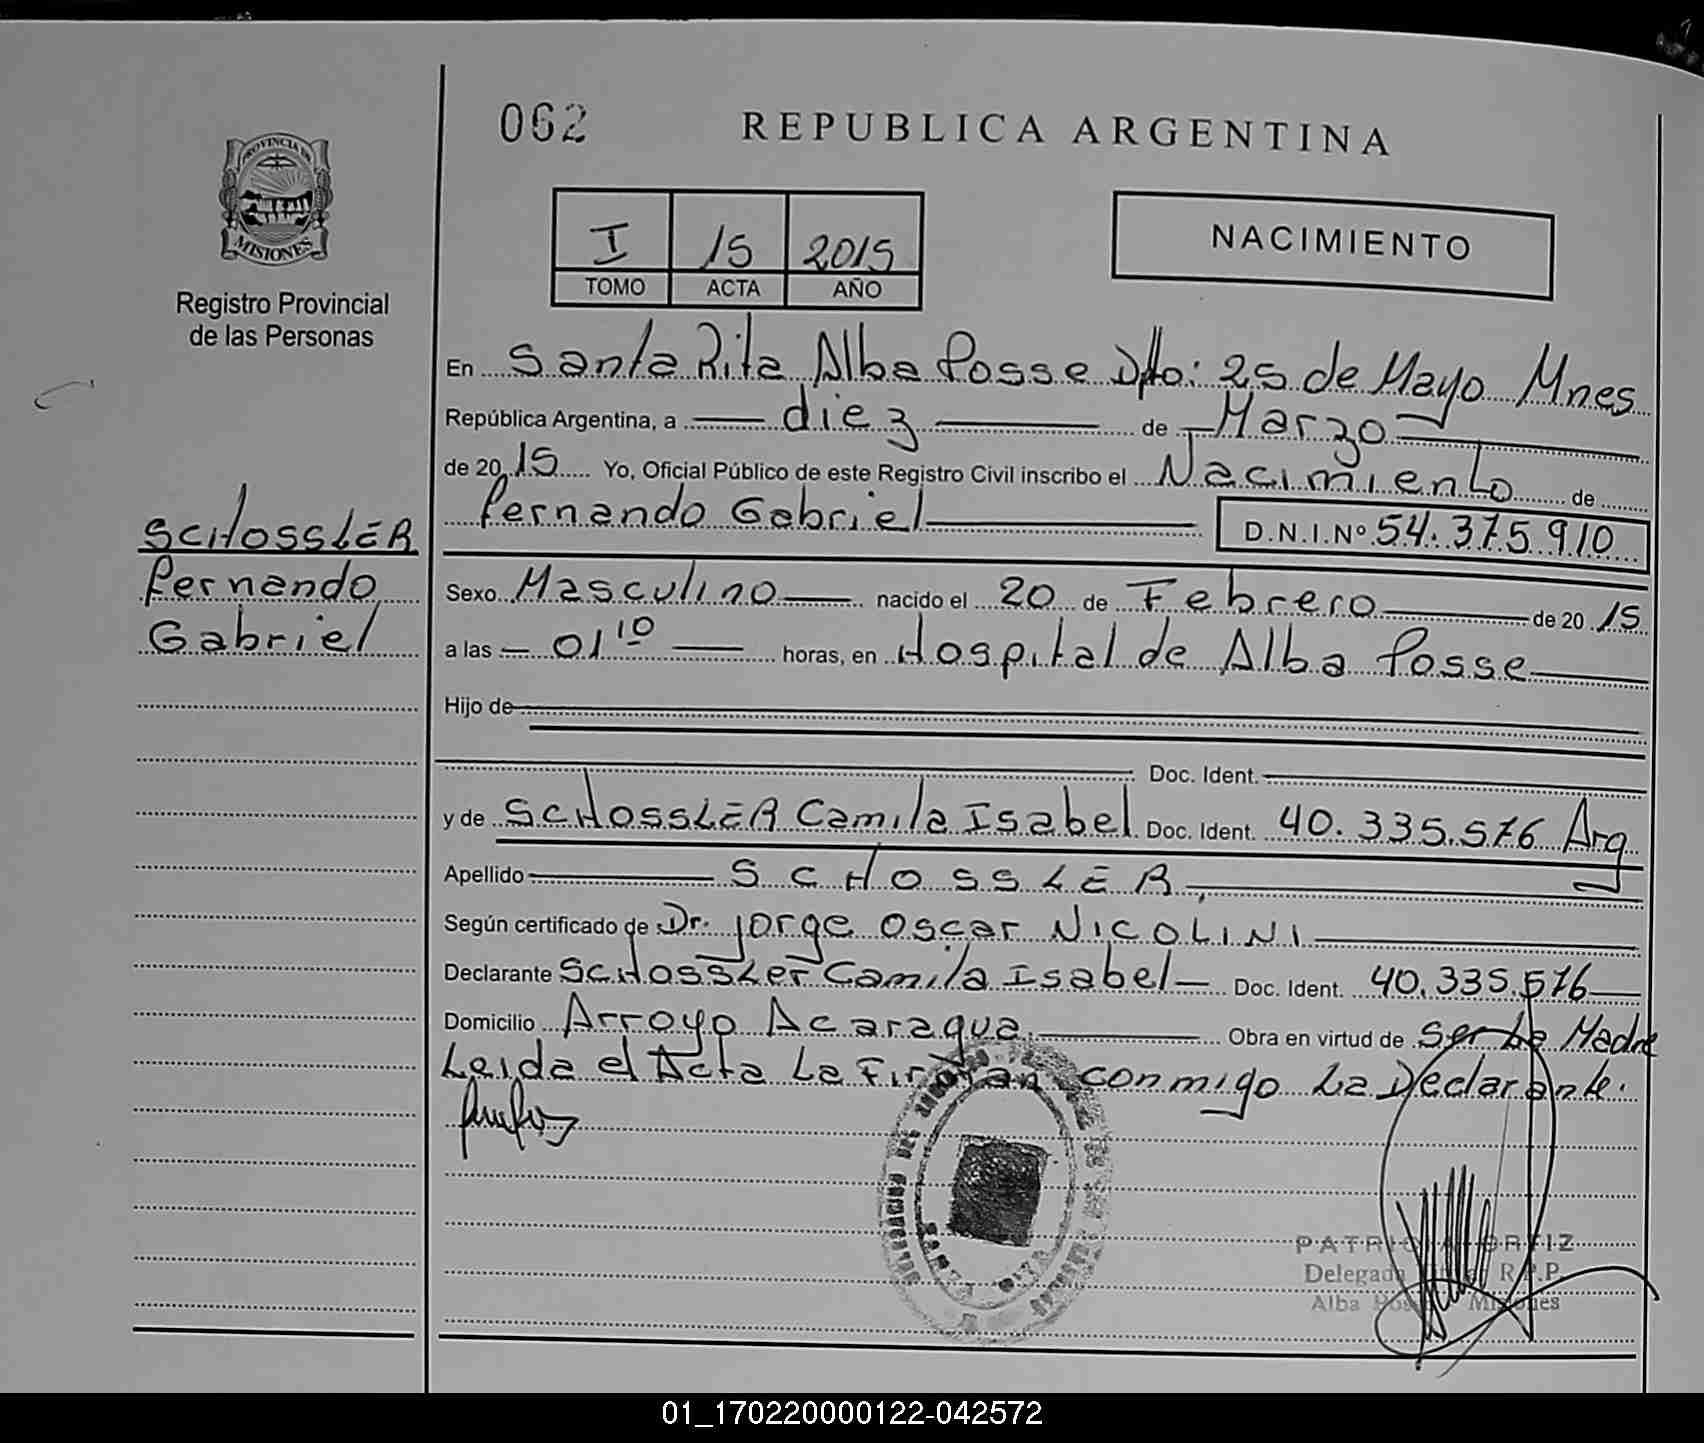 062
REPUBLICA ARGENTINA
PROVINCIA DE
MISIONES
Registro Provincial
de las Personas
I 15 2015
TOMO ACTA AÑO
NACIMIENTO
En Santa Rita Alba Posse Dpto: 25 de Mayo Mnes
República Argentina, a diez de Marzo
de 2015 Yo, Oficial Público de este Registro Civil inscribo el Nacimiento de
Fernando Gabriel D.N.I.Nº 54.375.910
SCHOSSLER
Fernando
Gabriel
Sexo Masculino nacido el 20 de Febrero de 2015
a las 01 10 horas, en Hospital de Alba Posse
Hijo de
Doc. Ident.
y de SCHOSSLER Camila Isabel Doc. Ident. 40.335.576 Arg
Apellido SCHOSSLER
Según certificado de Dr. Jorge Oscar NICOLINI
Declarante SCHOSSLER Camila Isabel Doc. Ident. 40.335.576
Domicilio Arroyo Acaragua Obra en virtud de Ser La Madre
Leida el Acta La Firman conmigo La Declarante.
SANTA RITA
PATRICIA ORTIZ
Delegada R.P.P.
Alba Posse Misiones
01_170220000122-042572